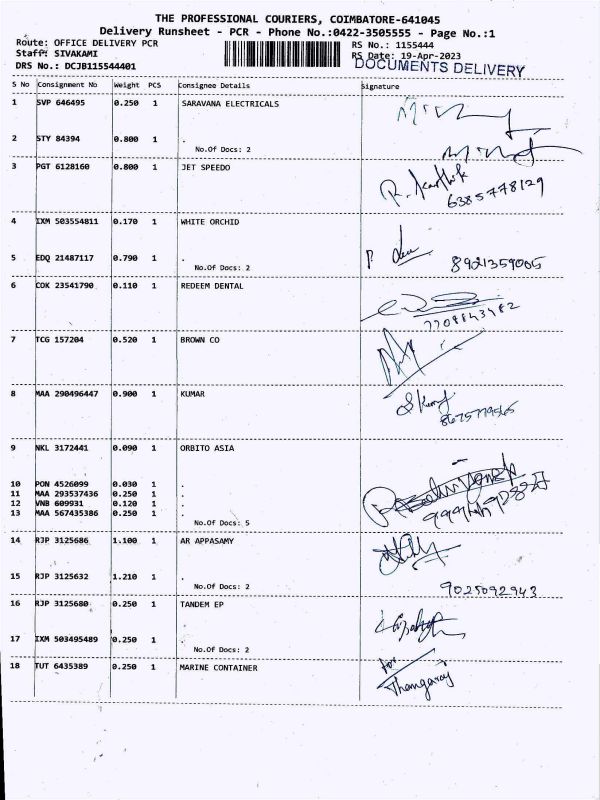 THE PROFESSIONAL COURIERS, COIMBATORE-641045
Delivery Runsheet - PCR - Phone No.:0422-3505555 - Page No.:1
Route: OFFICE DELIVERY PCR
RS No.: 1155444
Staff: SIVAKAMI
RS Date: 19-Apr-2023
DRS No.: DCJB115544401
DOCUMENTS DELIVERY
S No Consignment No Weight PCS Consignee Details Signature
1 SVP 646495 0.250 1 SARAVANA ELECTRICALS
2 STY 84394 0.800 1 .
No.Of Docs: 2
3 PGT 6128160 0.800 1 JET SPEEDO
R. Karthik
6385778129
4 IXM 503554811 0.170 1 WHITE ORCHID
5 EDQ 21487117 0.790 1 .
8921359005
No.Of Docs: 2
6 COK 23541790 0.110 1 REDEEM DENTAL
7708843482
7 TCG 157204 0.520 1 BROWN CO
8 MAA 290496447 0.900 1 KUMAR
8675779565
9 NKL 3172441 0.090 1 ORBITO ASIA
10 PON 4526099 0.030 1 .
11 MAA 293537436 0.250 1 .
12 VNB 609931 0.120 1 .
13 MAA 567435386 0.250 1 .
No.Of Docs: 5
14 RJP 3125686 1.100 1 AR APPASAMY
15 RJP 3125632 1.210 1 .
No.Of Docs: 2
9025092943
16 RJP 3125680 0.250 1 TANDEM EP
17 IXM 503495489 0.250 1 .
No.Of Docs: 2
18 TUT 6435389 0.250 1 MARINE CONTAINER
for
Thangaraj